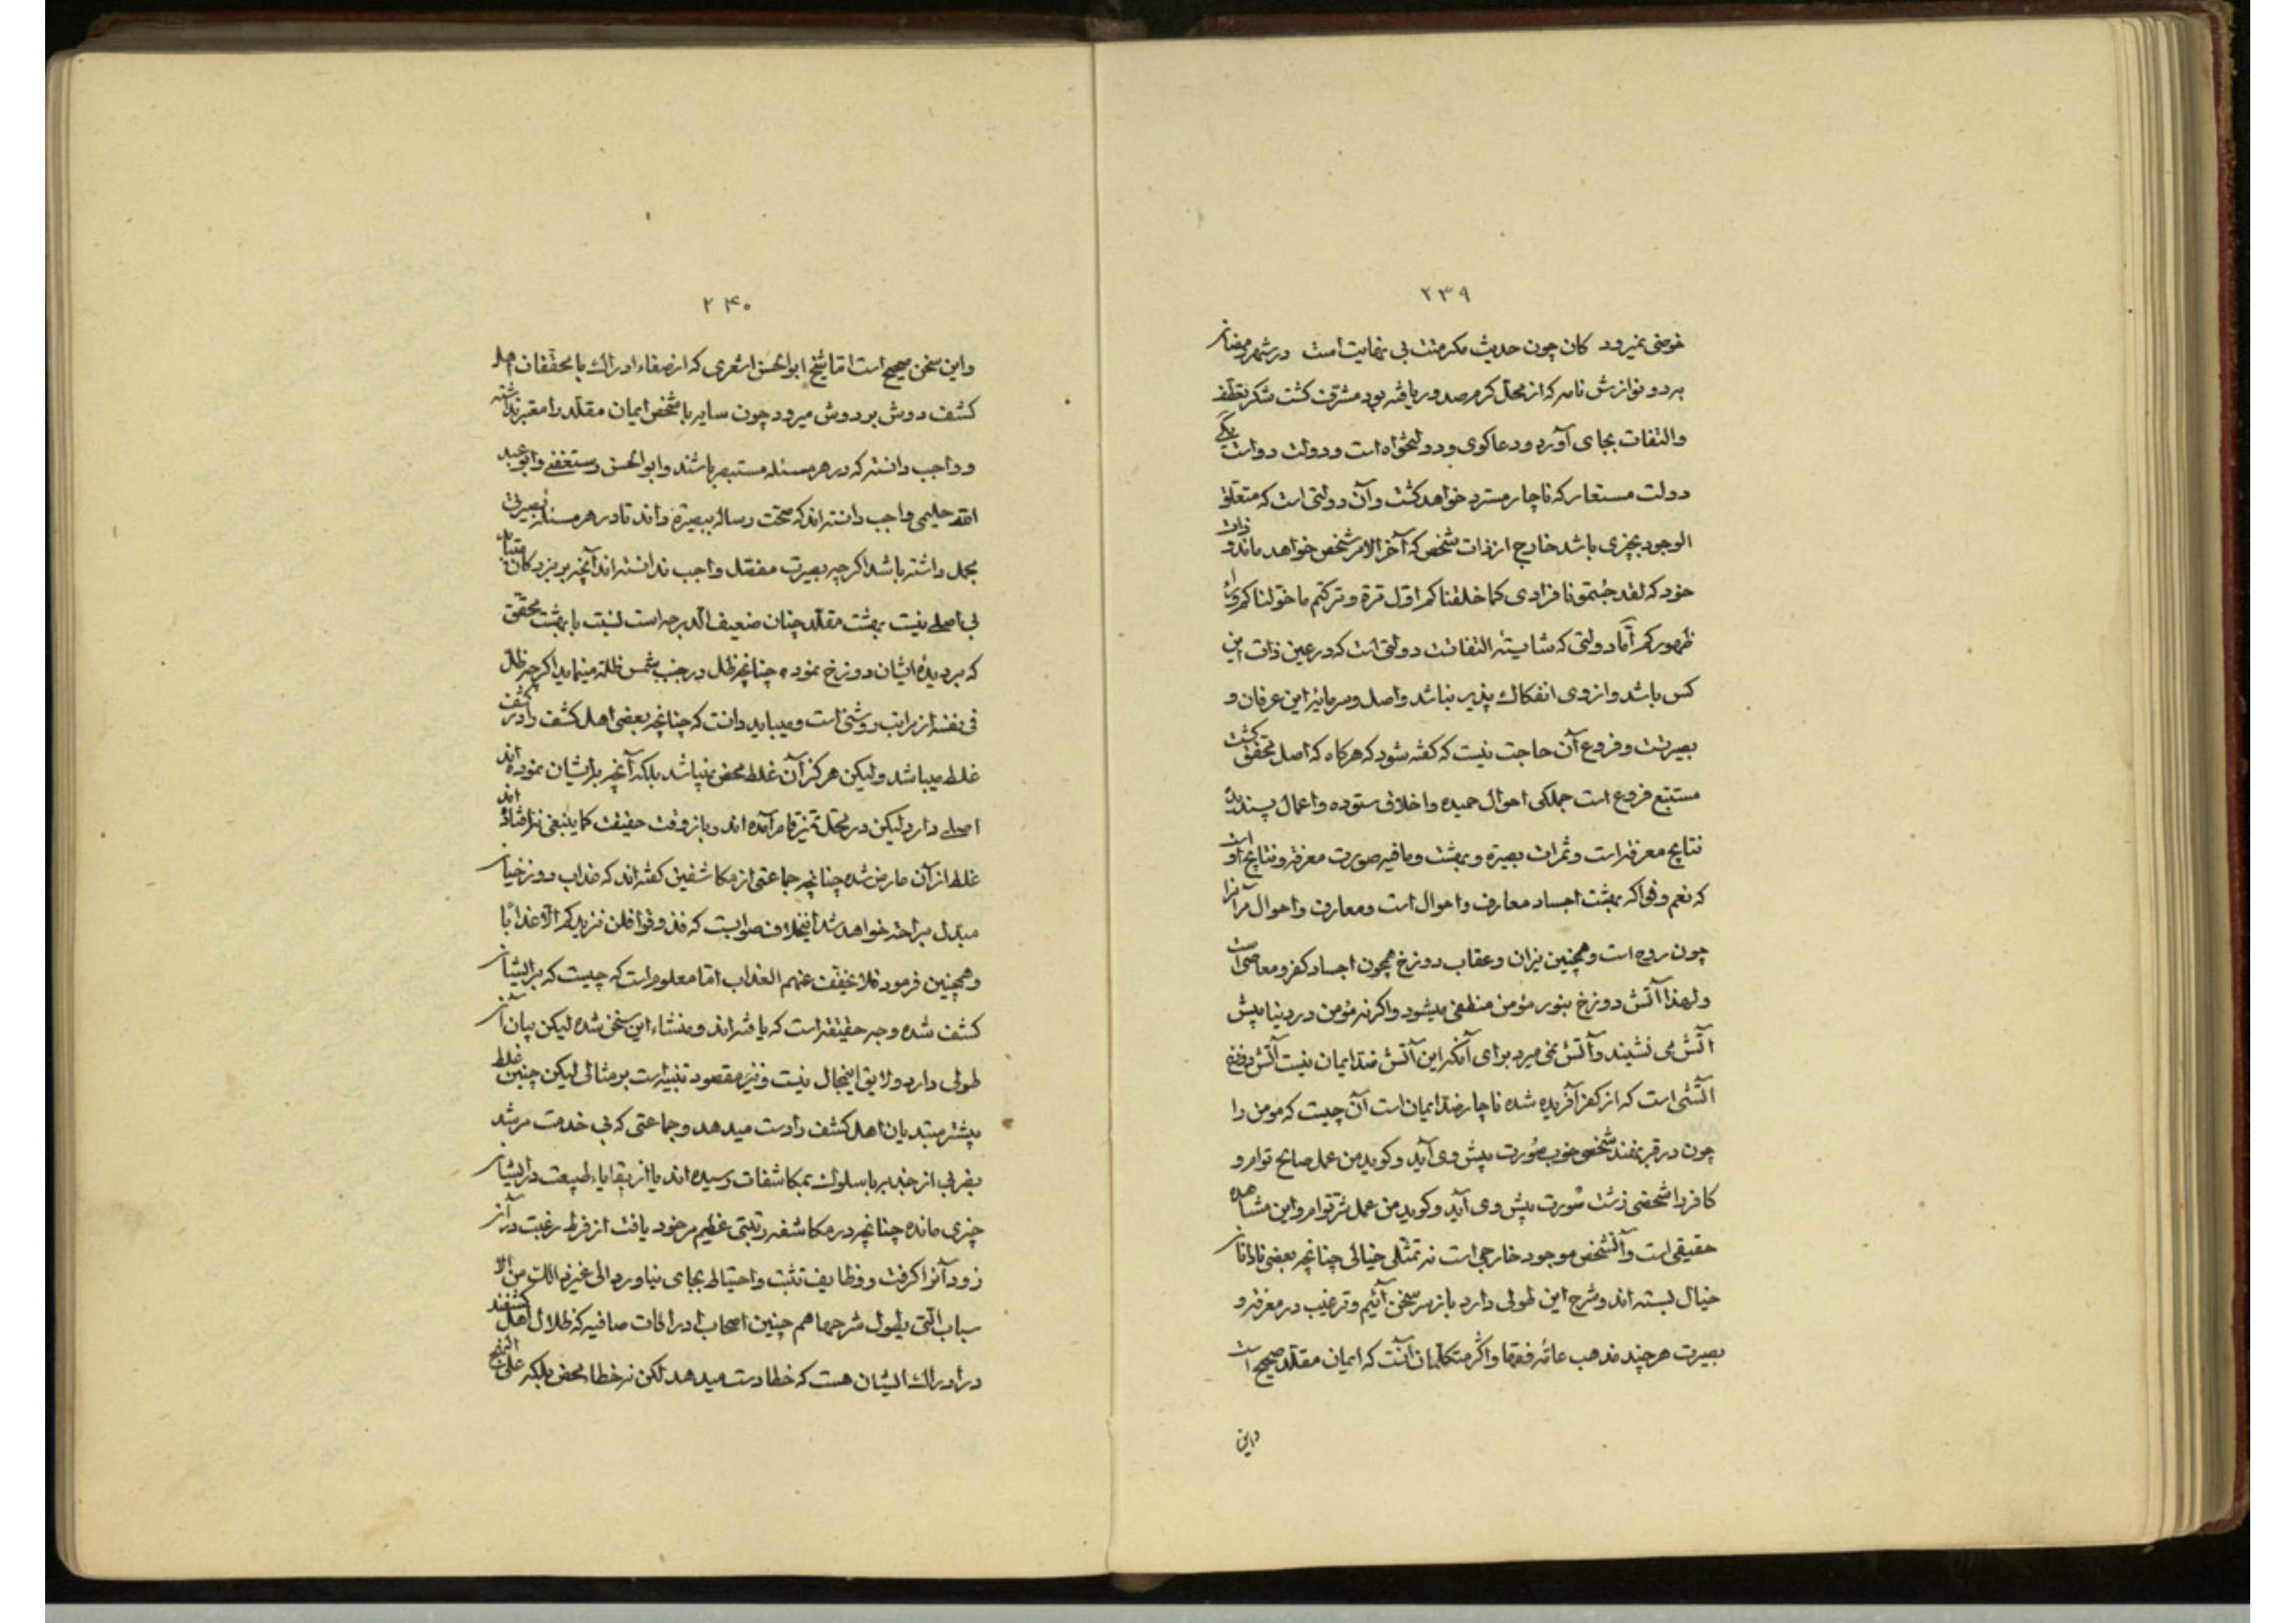 ۲۳۹
خوضی نمیرود کان چون حدیث مکرمت بی نهایت است در شهر رمضان
به دو نوازش نامه که از محل کرم صدور یافته بود مشرف کشت شکر تعطف
والتفات بجای آورد و دعاکوی و دولتخواه است و دولت دو است یکی
دولت مستعار که ناچار مسترد خواهد کشت وآن دولتی است که متعلق
الوجود بچیزی باشد خارج از ذات شخص که آخر الامر شخص خواهد ماند و ذات
خود که لقد جئتمونا فرادی کما خلقناکم اول مرة و ترکتم ما خولناکم وراء
ظهورکم اما دولتی که شایستهٔ التفاتست دولتی است که در عین ذات این
کس باشد و از وی انفکاك پذیر نباشد واصل و سرمایهٔ این عرفان و
بصیرتست و فروع آن حاجت نیست که کفته شود که هرکاه که اصل محقق کشت
مستتبع فروع است جملکی احوال حمیده واخلاق ستوده واعمال پسندیده
نتایج معرفتست و ثمرات بصیرة و بهشت وما فیه صورت معرفة و نتایج او است
که نعم و فواکه بهشت اجساد معارف واحوال است ومعارف واحوال مر آنرا
چون روح است وهمچنین نیران وعقاب دوزخ همچون اجساد کفر و معاصی است
ولهذا آتش دوزخ بنور مؤمن منطفی میشود واکرنه مؤمن در دنیا پیش
آتش می نشیند و آتش نمی میرد برای آنکه این آتش ضد ایمان نیست آتش دوزخ
آتشی است که از کفر آفریده شده ناچار ضد ایمان است آن چیست که مومن را
چون در قبر نهند شخصی خوب صورت پیش وی آید و کوید من عمل صالح توام و
کافر را شخصی زشت صورت پیش وی آید و کوید من عمل شر توام واین مشاهدهٔ
حقیقی است وآنشخص موجود خارجی است نه تمثلی خیالی چنانچه بعضی نادانان
خیال بسته اند و شرح این طولی دارد باز سر سخن آئیم و ترغیب در معرفة و
بصیرت هرچند مذهب عامهٔ فقها واکثر متکلمان آنست که ایمان مقلد صحیح است
واین
۲۴۰
واین سخن صحیح است اما شیخ ابوالحسن اشعری که از صفاء ادراك با محققان اهل
کشف دوش بر دوش میرود چون سایه با شخص ایمان مقلد را معتبر نداشته
و واجب دانسته که در هر مسئله مستبصر باشند وابوالحسن رستغفنی وابو عبد
الله حلیمی واجب دانسته اند که صحت رساله ببصیرة داند تا در هر مسئله بصیرتی
مجمل داشته باشد اکرچه بصیرت مفصل واجب ندانسته اند آنچه بر نزدکان
بی اصلی نیست بهشت مقلد چنان ضعیف الدرجه است نسبت با بهشت محقق
که بر دیدهٔ ایشان دوزخ نموده چنانچه ظل در جنب شمس ظلمة مینماید اکرچه ظل
فی نفسه از مراتب روشنی است ومیباید دانست که چنانچه بعضی اهل کشف را در کشف
غلط میباشد ولیکن هرکز آن غلط محض نمیباشد بلکه آنچه بر ایشان نموده اند
اصلی دارد لیکن در محل تمیز قاصر آمده اند و باز وقت حقیقت کما ینبغی نه افتاده اند
غلط از آن عارض شده چنانچه جماعتی از مکاشفین کفته اند که عذاب دوزخیان
مبدل براحة خواهد شد اینخلاف صوابست که فذوقوا فلن نزیدکم الا عذابا
وهمچنین فرمود فلا یخفف عنهم العذاب اما معلوم است که چیست که بر ایشان
کشف شده وجه حقیقة است که یافته اند ومنشاء این سخن شده لیکن بیان آن
طولی دارد ولایق اینمجال نیست و نیز مقصود تنبیه است بر مثالی لیکن چنین غلط
بیشتر مبتدیان اهل کشف را دست میدهد وجماعتی که بی خدمت مرشد
بضربی از جذبه یا سلوك بمکاشفات رسیده اند یا از بقایاء طبیعت در ایشان
چیزی مانده چنانچه در مکاشفه رتبتی عظیم مر خود یافت از فرط رغبت در آن
زود آنرا کرفت و وظایف تثبت واحتیاط بجای نیاورد الی غیر ذالك من الا
سباب التی یطول شرحها هم چنین اصحاب ادراکات صافیه که ظلال اهل کشفند
در ادراك ایشان هست که خطا دست میدهد لکن نه خطاء محض بلکه علی النهج